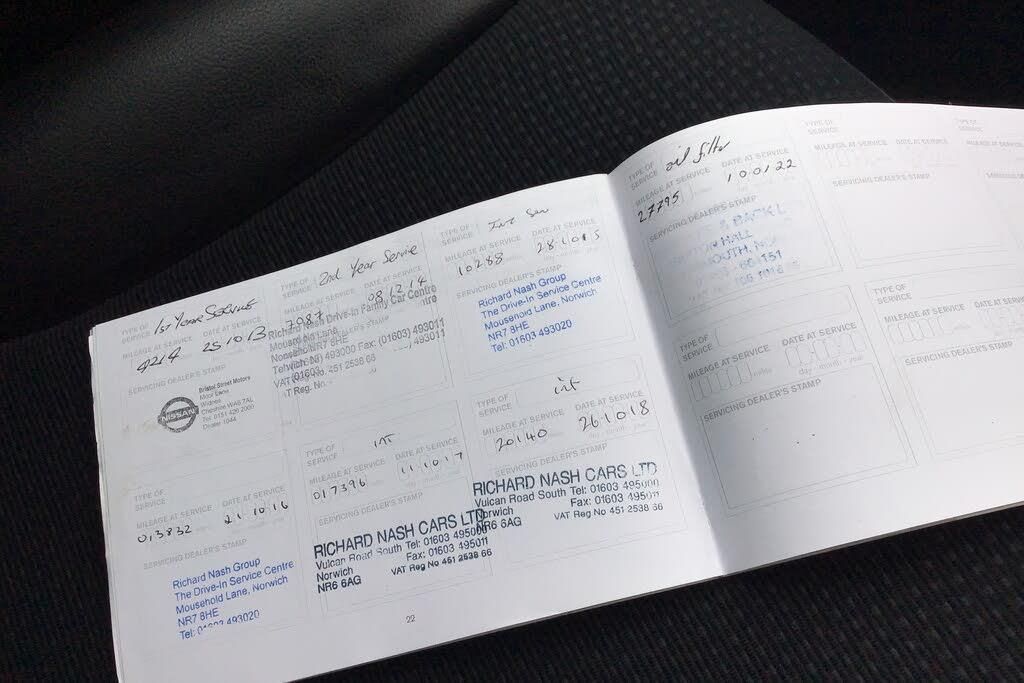 TYPE OF SERVICE 1st YEAR SERVICE
MILEAGE AT SERVICE DATE AT SERVICE
4214 25 10 13
SERVICING DEALER'S STAMP
NISSAN
Bristol Street Motors
Moor Lane
Widnes
Cheshire WA8 7AL
Tel: 0151 420 2000
Dealer 1044
TYPE OF SERVICE 2nd Year Service
MILEAGE AT SERVICE DATE AT SERVICE
7087 08 12 14
Richard Nash Drive-In Family Car Centre
NR7 8HE
Fax: (01603) 493011
VAT Reg No. 451 2538 66
TYPE OF SERVICE Int Ser
MILEAGE AT SERVICE DATE AT SERVICE
10288 28 10 15
SERVICING DEALER'S STAMP
Richard Nash Group
The Drive-In Service Centre
Mousehold Lane, Norwich
NR7 8HE
Tel: 01603 493020
TYPE OF SERVICE
MILEAGE AT SERVICE DATE AT SERVICE
013832 21 10 16
SERVICING DEALER'S STAMP
Richard Nash Group
The Drive-In Service Centre
Mousehold Lane, Norwich
NR7 8HE
Tel: 493020
TYPE OF SERVICE INT
MILEAGE AT SERVICE DATE AT SERVICE
017396 11 10 17
SERVICING DEALER'S STAMP
RICHARD NASH CARS LTD
Vulcan Road South Tel: 01603 495000
Norwich Fax: 01603 495011
NR6 6AG VAT Reg No 451 2538 66
TYPE OF SERVICE int
MILEAGE AT SERVICE DATE AT SERVICE
20140 26 10 18
SERVICING DEALER'S STAMP
RICHARD NASH CARS LTD
Vulcan Road South Tel: 01603 495000
Norwich Fax: 01603 495011
NR6 6AG VAT Reg No 451 2538 66
22
TYPE OF SERVICE oil filter
MILEAGE AT SERVICE DATE AT SERVICE
27795 10 01 22
SERVICING DEALER'S STAMP
HALL
TYPE OF SERVICE
MILEAGE AT SERVICE DATE AT SERVICE
SERVICING DEALER'S STAMP
TYPE OF SERVICE
MILEAGE AT SERVICE DATE AT SERVICE
day - month - year
SERVICING DEALER'S STAMP
TYPE OF SERVICE
MILEAGE AT SERVICE DATE AT SERVICE
SERVICING DEALER'S STAMP